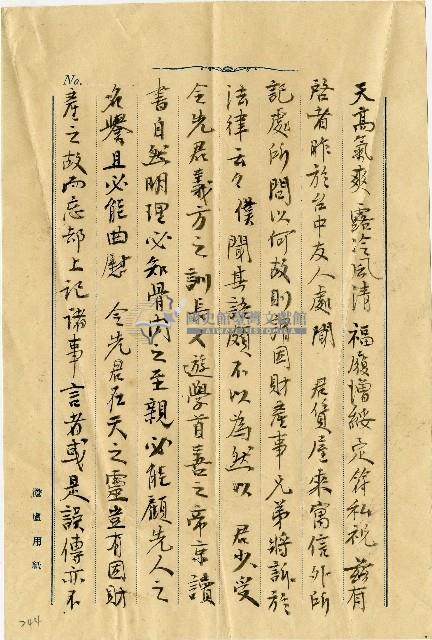 No.
天高氣爽 露冷風清 福履增綏定符私祝 茲有
啓者昨於台中友人處聞 君賃屋來寓信外所
記處所問以何故則謂因財產事兄弟將訴於
法律云々 僕聞其語頗不以為然以 君少受
令先君義方之訓長又遊學首善之帝京讀
書自然明理必知骨肉之至親必能顧先人之
名譽且必能曲慰 令先君在天之靈豈有因財
產之故而忘却上記諸事言者或是誤傳亦不
用紙
國史館臺灣文獻館
TAIWAN HISTORICA
744